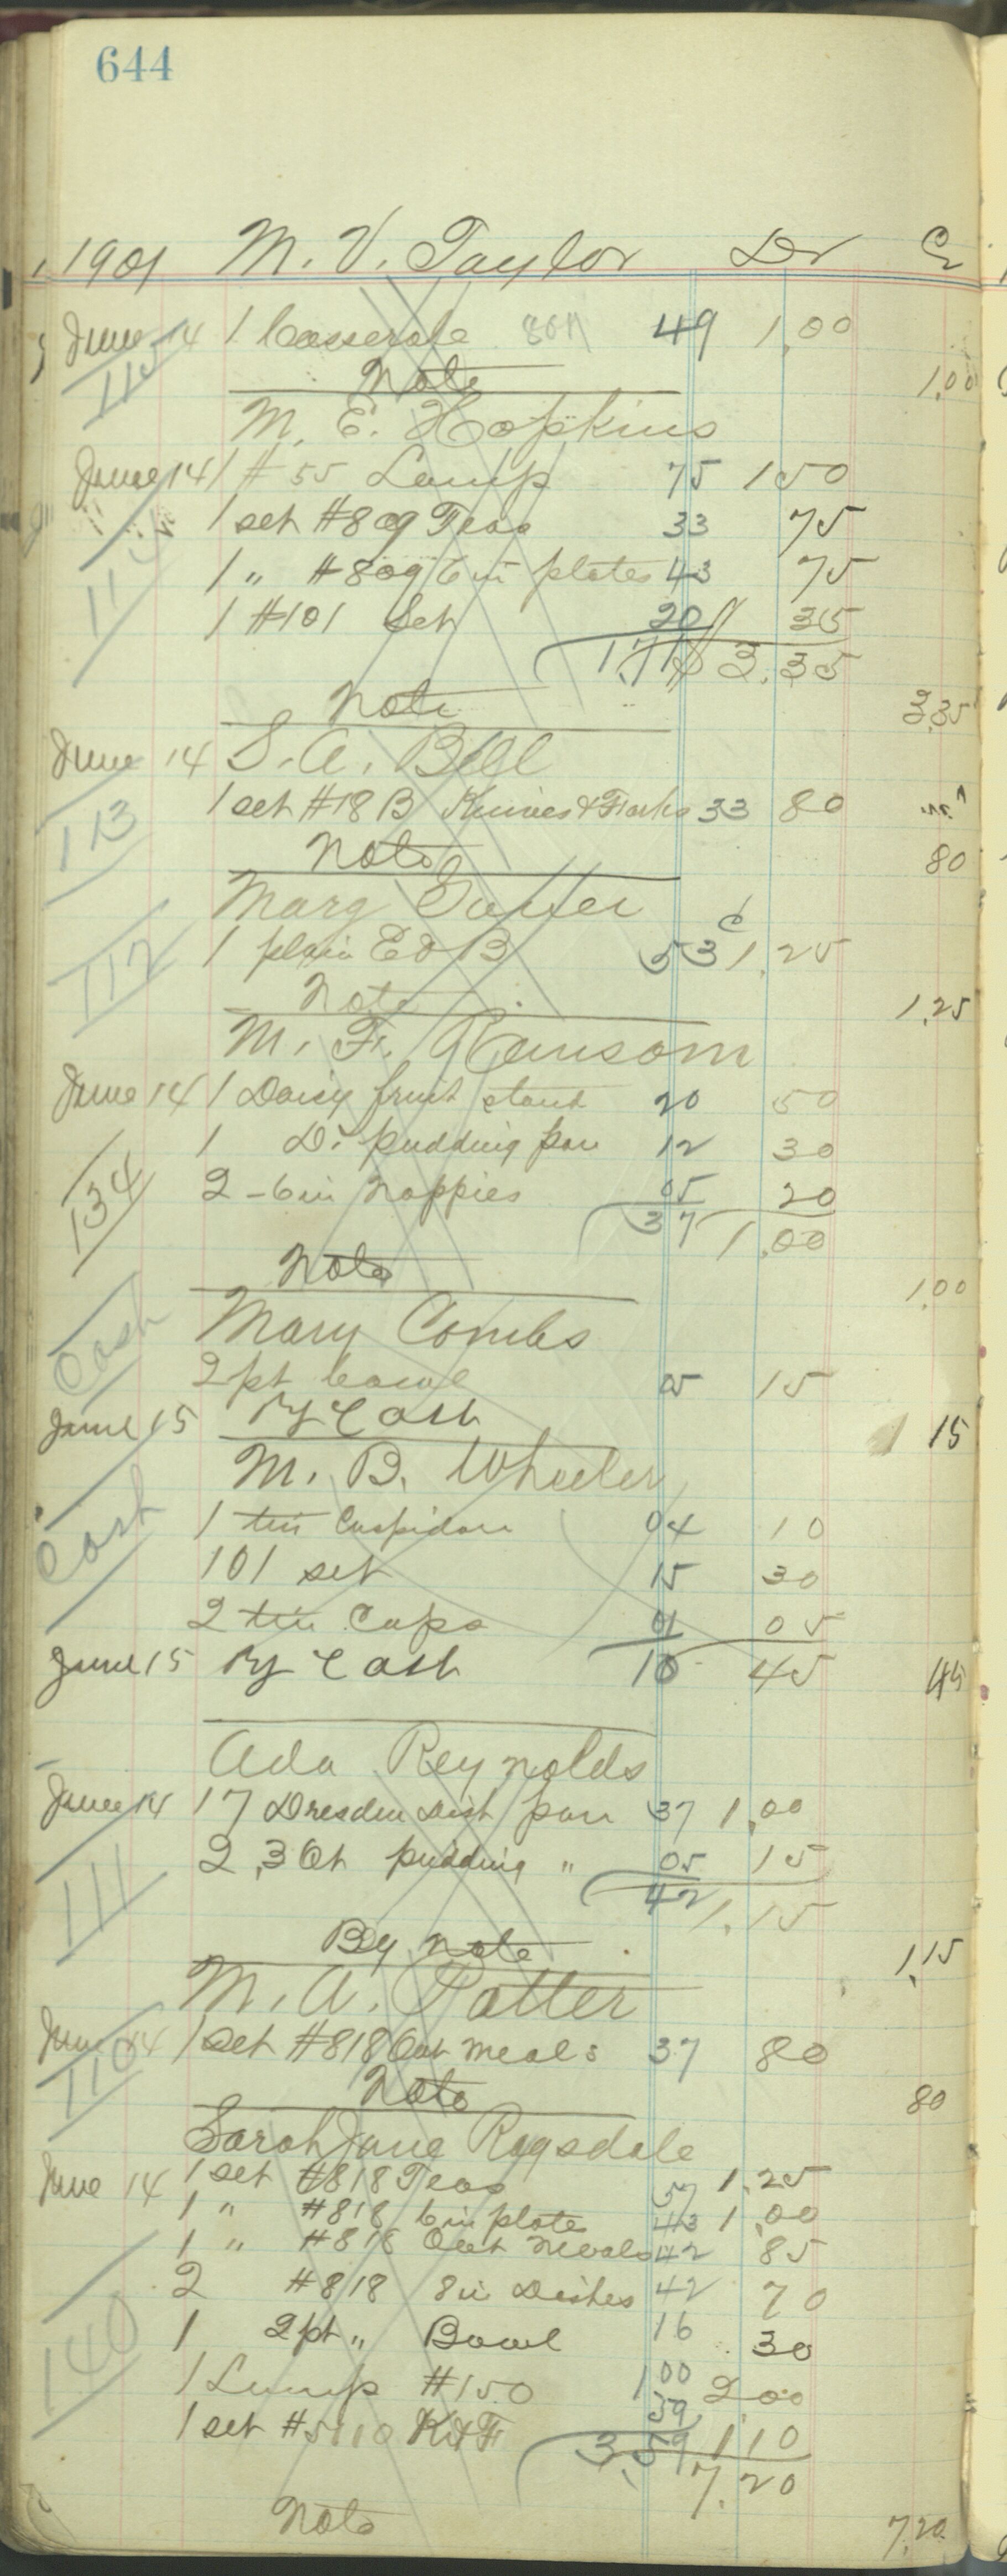 644
1901 M. V. Taylor Dr Cr
June 14 1 Casserole 49 1.00
115 Note 1.00
M. E. Hopkins
June 14 1 # 55 Lamp 75 1 50
1 set #809 Teas 33 75
114 1 " #809 6 in plates 43 75
1 #101 Set 20 35
1.71 3.35
Note 3.35
June 14 S. A. Bell
1 set #18 B Knives & Forks 33 80
113 Note 80
Marg
112 1 plain E & B 53 1.25
Note 1.25
M. F. Ransom
June 14 1 Daisy fruit stand 20 50
1 Do pudding pan 12 30
134 2 - 6 in Nappies 05 20
37 1.00
Note 1.00
Cash Mary Combs
2 pt 05 15
June 15 By Cash 15
M. B. Wheeler
Cash 1 tin Cuspidor 04 10
101 set 15 30
2 tin Cups 01 05
June 15 By Cash 45 45
Ada Reynolds
June 14 17 Dresden Dish pan 37 1.00
2, 3 Qt pudding " 05 15
111 42 1.15
By note 1.15
M. A. Potter
June 14 1 set #818 Oat Meals 37 80
110 Note 80
Sarah Jane Ragsdale
June 14 1 set #818 Teas 57 1.25
1 " #818 6 in plate 43 1.00
1 " #818 Oat Meals 42 85
2 #818 8 in Dishes 42 70
140 1 2 pt " Bowl 16 30
1 Lamp #150 1 00 2.00
1 set K & F 59 1 10
3.59 7.20
Note 7.20